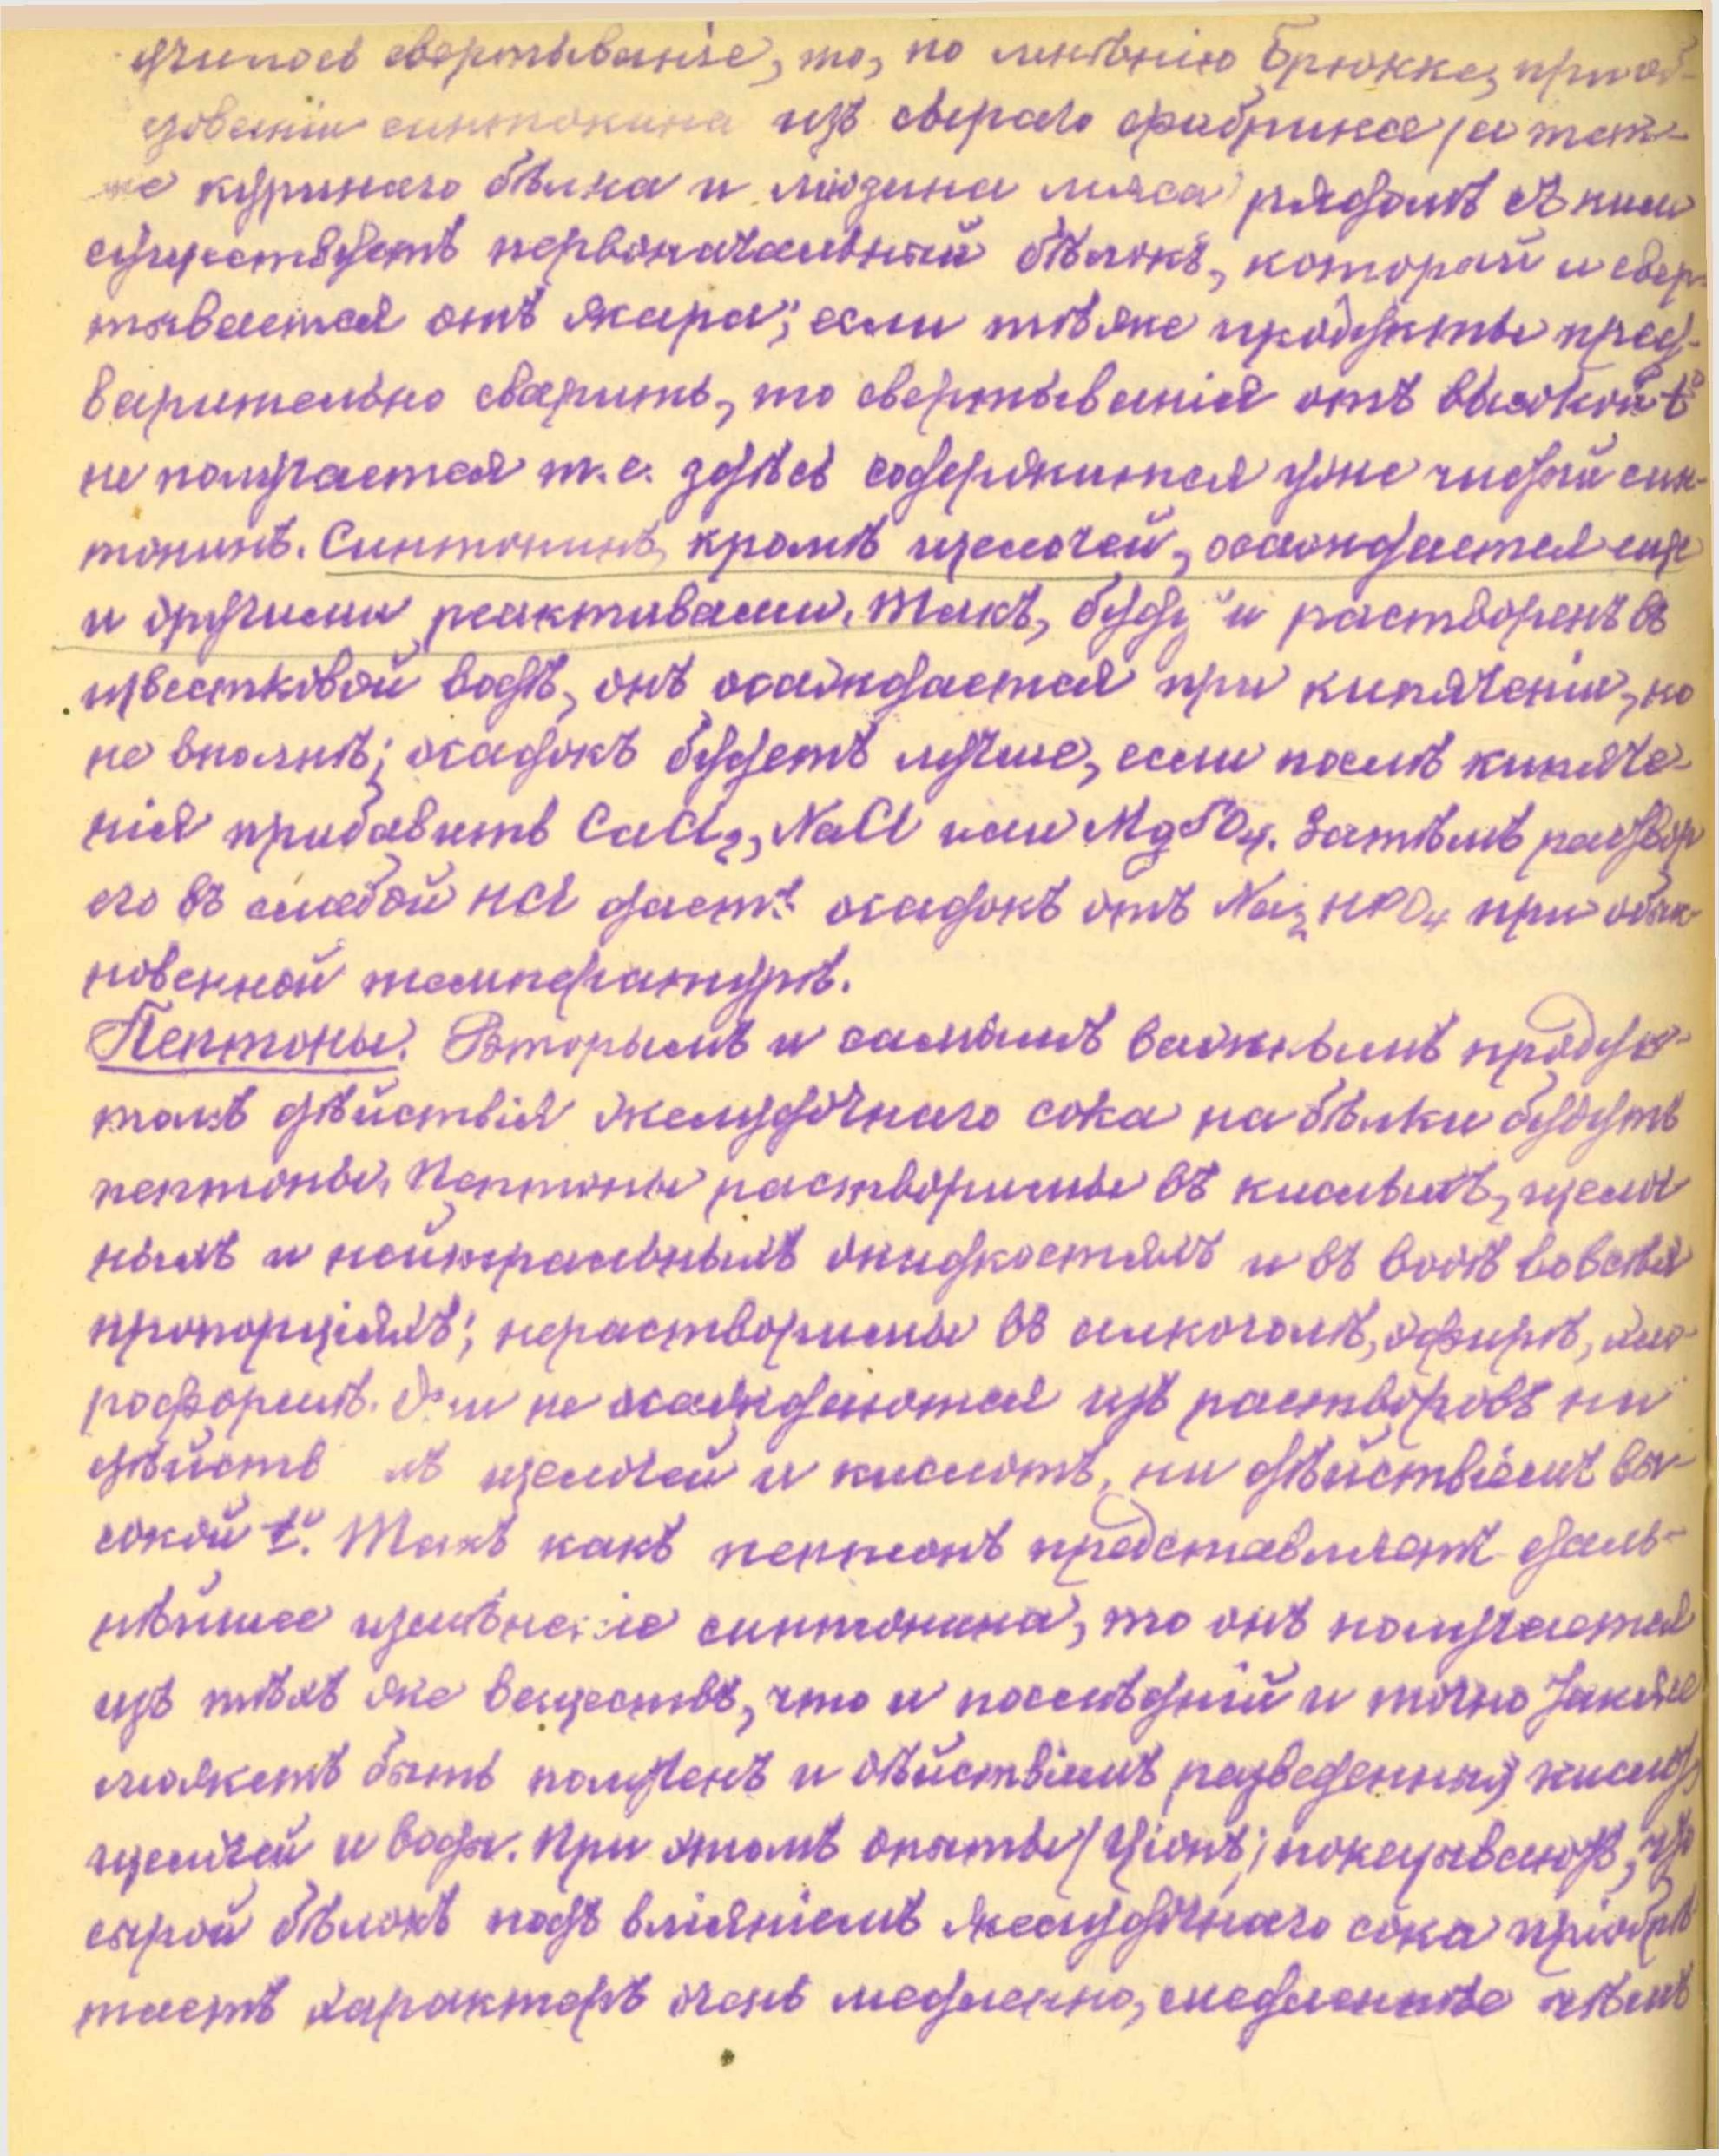 училось свертыванiе, то, по мнѣнiю Брюкке, при об-
зованiи синтонина изъ сырого фибрина (а так-
же куринаго бѣлка и мiозина мяса) рядомъ съ ним
существуетъ первоначальный бѣлокъ, который и свер-
тывается отъ жара; если тѣ же продукты пред-
варительно сварить, то свертыванiя отъ высокой t°
не получается т.е. здѣсь содержится уже чистый син-
тонинъ. Синтонинъ, кромѣ щелочей, осаждается еще
и другими реактивами. Такъ, будучи растворенъ въ
известковой водѣ, онъ осаждается при кипяченiи, но
не вполнѣ; осадокъ будетъ лучше, если послѣ кипяче-
нiя прибавить CaCl2, NaCl или MgSO4. Затѣмъ раствор
его въ слабой HCl даетъ осадокъ отъ Na2HPO4 при обык-
новенной температурѣ.
Пептоны. Вторымъ и самымъ важнымъ продук-
томъ дѣйствiя желудочнаго сока на бѣлки будутъ
пептоны. Пептоны растворимы въ кислыхъ, щелоч
ныхъ и нейтральныхъ жидкостяхъ и въ водѣ во всѣхъ
пропорцiяхъ; нерастворимы въ алкоголѣ, эфирѣ, хло
роформѣ. Они не осаждаются изъ растворовъ ни
дѣйств мъ щелочей и кислотъ, ни дѣйствiемъ вы-
сокой t°. Такъ какъ пептонъ представляетъ даль-
нѣйшее измѣненiе синтонина, то онъ получается
изъ тѣхъ же веществъ, что и послѣднiй и точно также
можетъ быть полученъ и дѣйствiемъ разведенных кислот,
щелочей и воды. При этомъ опыты (Цiонъ) показываютъ, что
сырой бѣлокъ подъ влiянiемъ желудочнаго сока прiобрѣ
таетъ характеръ очень медленно, медленнѣе чѣмъ